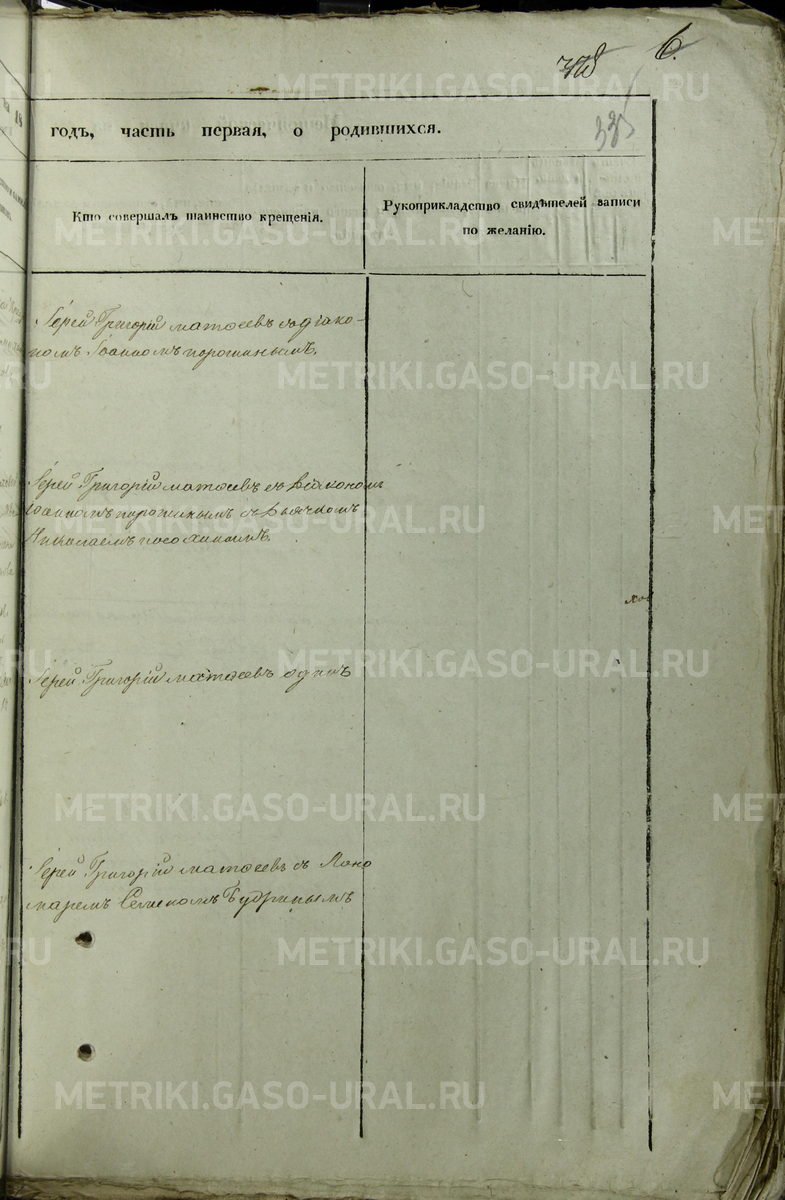 6.
335
годъ, часть первая, о родившихся.
Кто совершалъ таинство крещенія.
Рукоприкладство свидѣтелей записи
по желанію.
Іерей Григорій Матѳеевъ съ діако-
номъ Іоанномъ Порошинымъ.
Іерей Григорій Матѳеевъ съ діакономъ
Іоанномъ Порошинымъ съ дьячкомъ
Николаемъ
Іерей Григорій Матѳеевъ одинъ
Іерей Григорій Матѳеевъ съ Поно
маремъ
METRIKI.GASO-URAL.RU